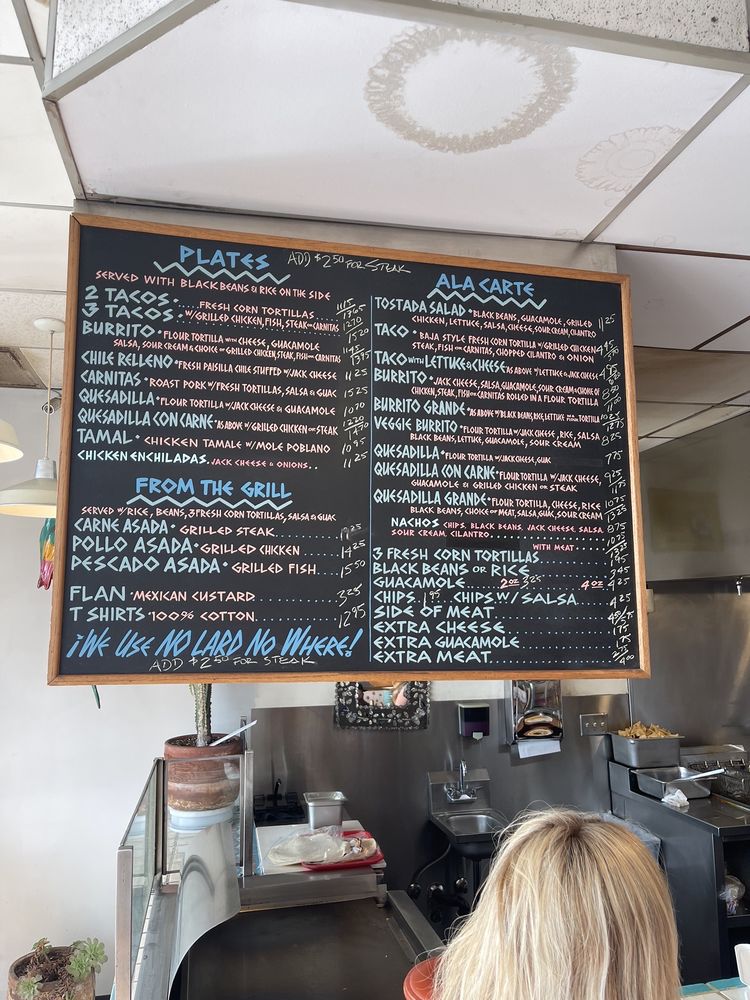 PLATES
ADD $2.50 FOR STEAK
SERVED WITH BLACK BEANS & RICE ON THE SIDE
2 TACOS. FRESH CORN TORTILLAS
3 TACOS. W/GRILLED CHICKEN, FISH, STEAK OR CARNITAS
BURRITO • FLOUR TORTILLA WITH CHEESE, GUACAMOLE
SALSA, SOUR CREAM & CHOICE OF GRILLED CHICKEN, STEAK, FISH OR CARNITAS
CHILE RELLENO • FRESH PAISILLA CHILE STUFFED W/JACK CHEESE 11 25
CARNITAS • ROAST PORK W/FRESH TORTILLAS, SALSA & GUAC 15 25
QUESADILLA • FLOUR TORTILLA W/JACK CHEESE & GUACAMOLE 10 70
QUESADILLA CON CARNE • AS ABOVE W/GRILLED CHICKEN OR STEAK
TAMAL • CHICKEN TAMALE W/MOLE POBLANO 10 95
CHICKEN ENCHILADAS.. JACK CHEESE & ONIONS.. 11 25
FROM THE GRILL
SERVED W/RICE, BEANS, 3 FRESH CORN TORTILLAS, SALSA & GUAC
CARNE ASADA • GRILLED STEAK
POLLO ASADA • GRILLED CHICKEN 14 25
PESCADO ASADA • GRILLED FISH 15 50
FLAN • MEXICAN CUSTARD
T SHIRTS • 100% COTTON 12 95
¡WE USE NO LARD NO WHERE!
ADD $2.50 FOR STEAK
ALA CARTE
TOSTADA SALAD • BLACK BEANS, GUACAMOLE, GRILLED 11 25
CHICKEN, LETTUCE, SALSA, CHEESE, SOUR CREAM, CILANTRO
TACO • BAJA STYLE FRESH CORN TORTILLA W/GRILLED CHICKEN
STEAK, FISH OR CARNITAS, CHOPPED CILANTRO & ONION
TACO WITH LETTUCE & CHEESE AS ABOVE W/LETTUCE & JACK CHEESE
BURRITO • JACK CHEESE, SALSA, GUACAMOLE, SOUR CREAM & CHOICE OF
CHICKEN, STEAK, FISH OR CARNITAS ROLLED IN A FLOUR TORTILLA
BURRITO GRANDE • AS ABOVE W/BLACK BEANS, RICE, LETTUCE TORTILLA
VEGGIE BURRITO • FLOUR TORTILLA W/JACK CHEESE, RICE, SALSA 8 25
BLACK BEANS, LETTUCE, GUACAMOLE, SOUR CREAM
QUESADILLA • FLOUR TORTILLA W/JACK CHEESE, GUAC 7 75
QUESADILLA CON CARNE • FLOUR TORTILLA W/JACK CHEESE, 9 25
GUACAMOLE & GRILLED CHICKEN OR STEAK 11 75
QUESADILLA GRANDE • FLOUR TORTILLA, CHEESE, RICE 10 75
BLACK BEANS, CHOICE OF MEAT, SALSA, GUAC, SOUR CREAM 13 25
NACHOS CHIPS, BLACK BEANS, JACK CHEESE, SALSA 8 75
SOUR CREAM, CILANTRO
WITH MEAT
3 FRESH CORN TORTILLAS
BLACK BEANS OR RICE
GUACAMOLE 2 OZ 3 25 4 OZ
CHIPS. 1 95 CHIPS W/SALSA 4 25
SIDE OF MEAT
EXTRA CHEESE 1 75
EXTRA GUACAMOLE 1 75
EXTRA MEAT